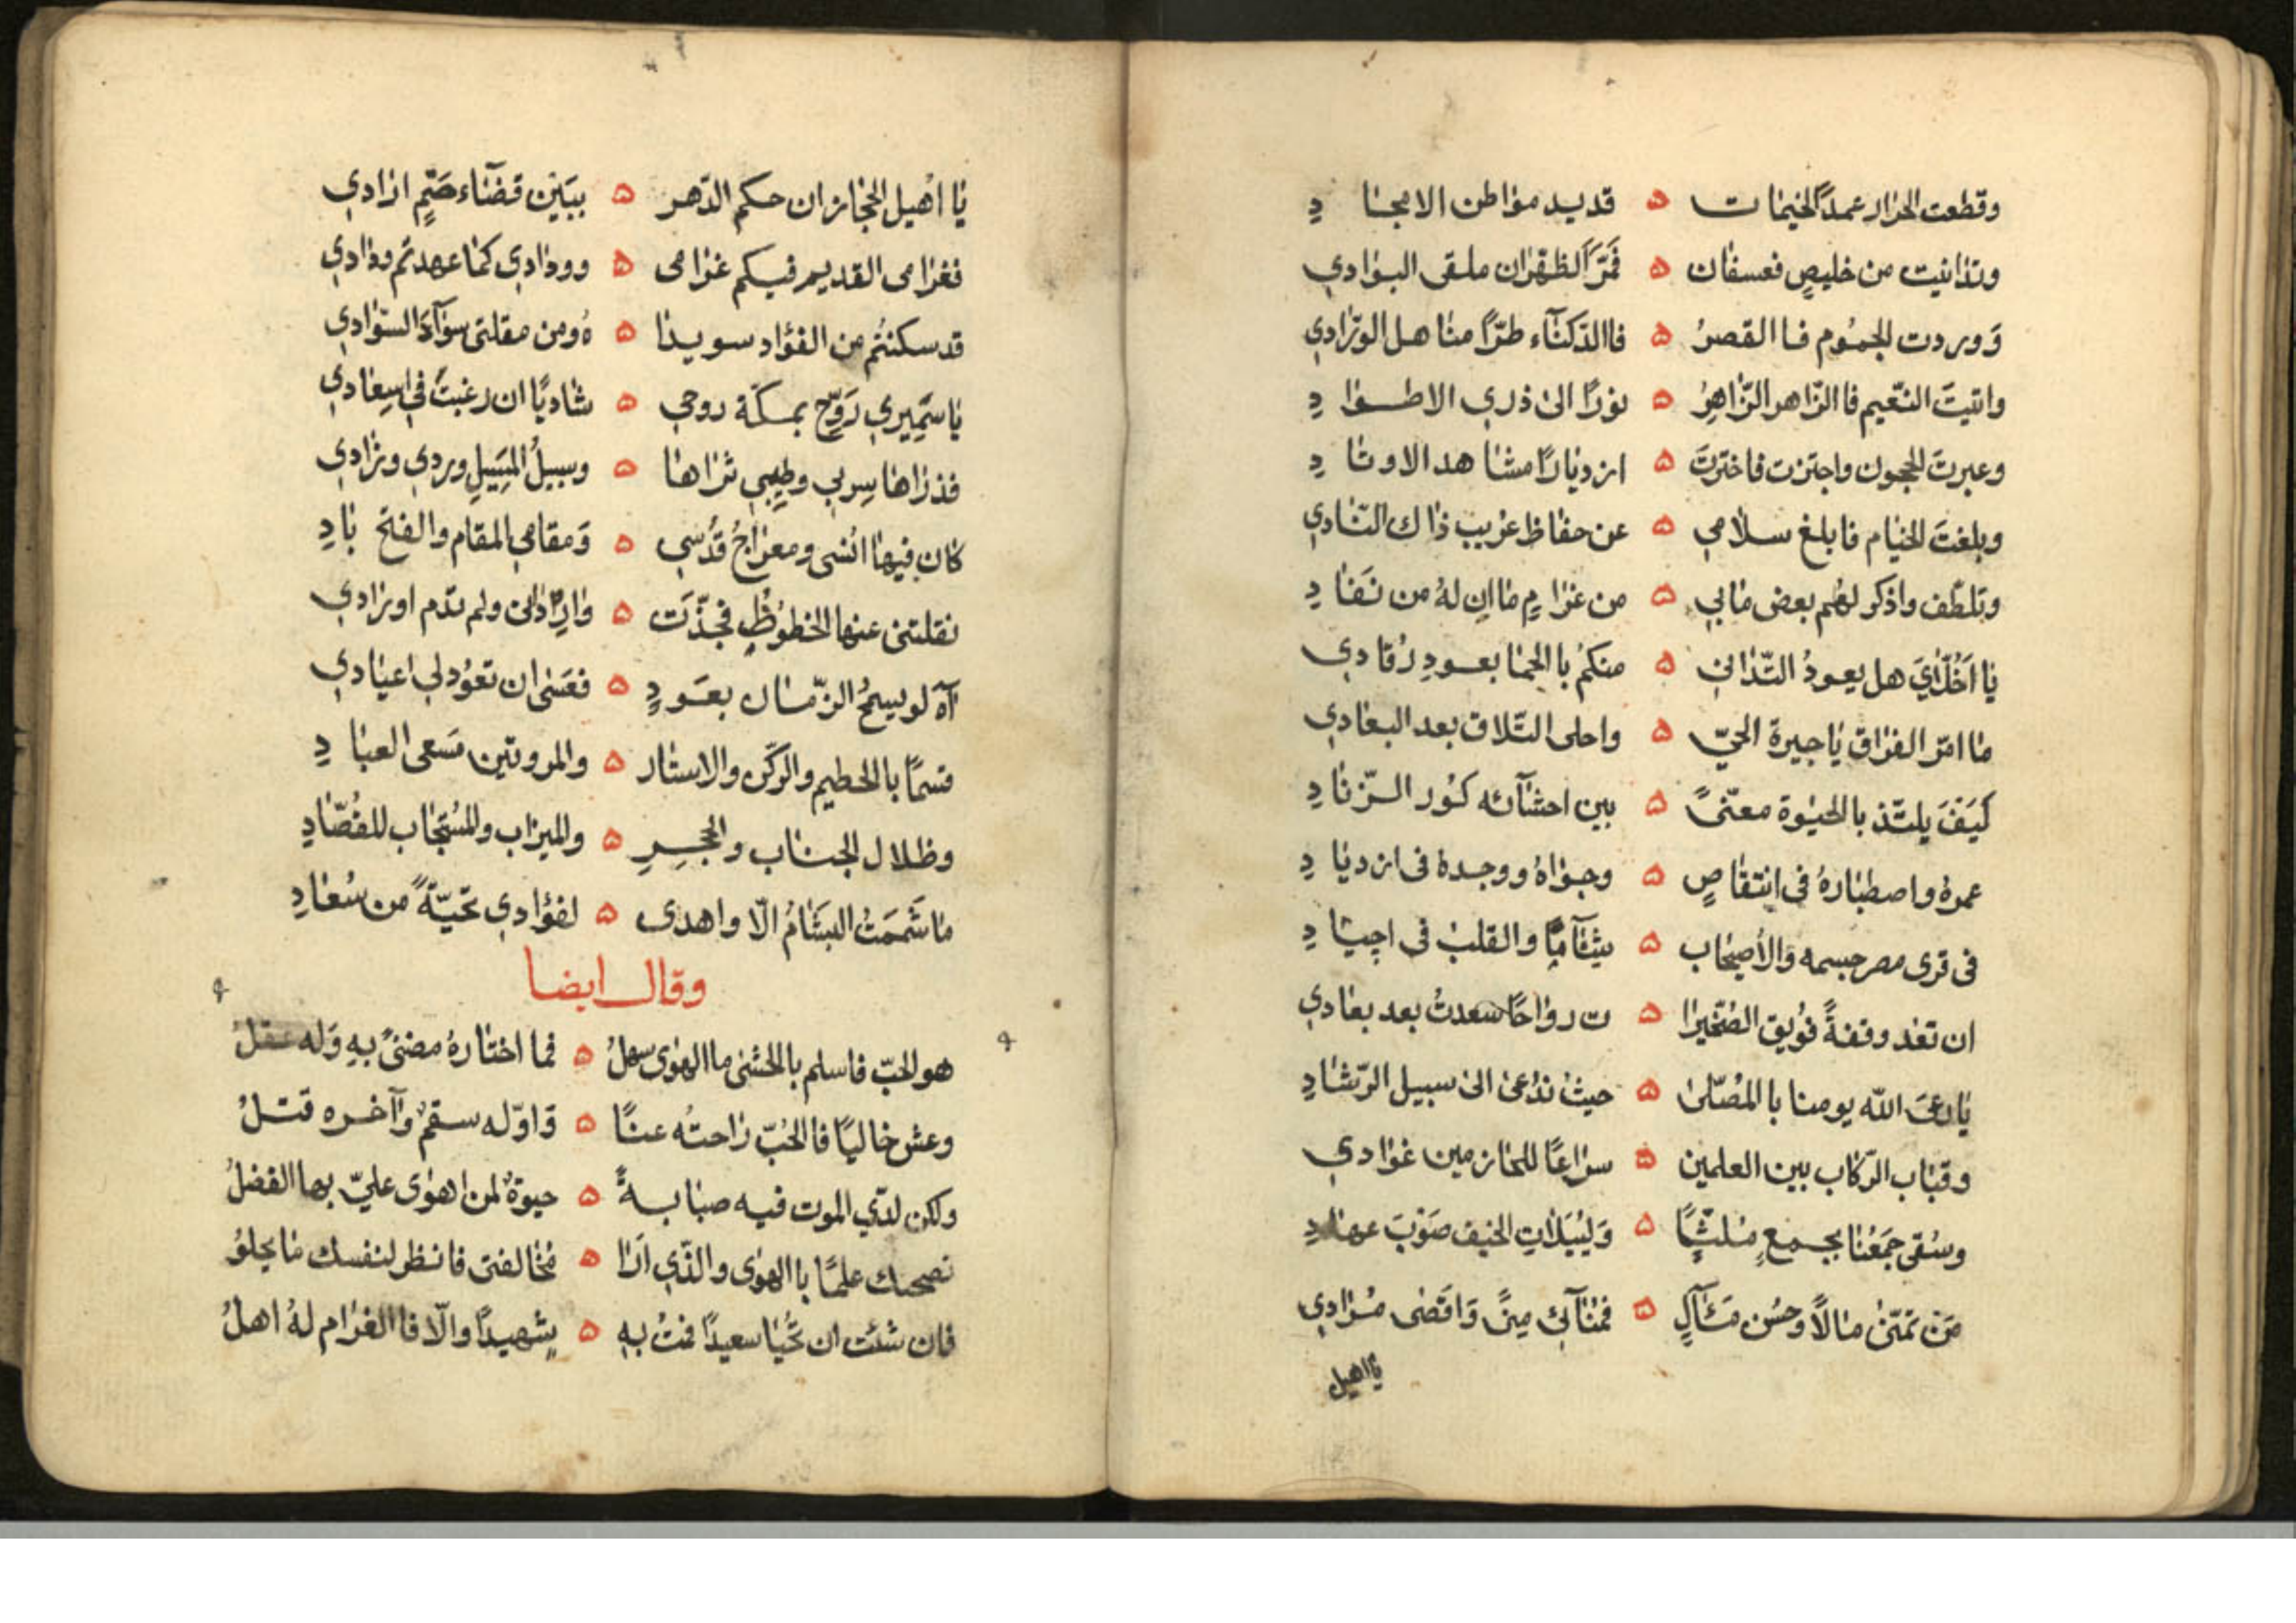 وقطعت الحرار عمدًا لخيمات ۵ قديد مواطن الامجاد
وتدانيت من خليصٍ فعسفان ۵ فمَرَّ الظهران ملقى البوادي
وَوردت الجمُوم فا القصرُ ۵ فاالدَكنآء طرّاً مناهل الورّادي
واتيتَ النعّيم فا الزّاهر الزّاهِرُ ۵ نورًا الى ذري الاطوادِ
وعبرتَ الحجون واجتزت فاخترتَ ۵ ازديارًا مشاهد الاوتادِ
وبلغتَ الخيام فابلغ سلامي ۵ عن حفاظ عُريب ذاك النّادي
وتلطّف واذكر لهُم بعض مابي ۵ من غرامٍ ماان لهُ من نَفادِ
يا اَخُلّايَ هل يعودُ التّداني ۵ منكمُ باالحما بعودِ رُقادي
ما امرّ الفراق يا جيرة الحيّ ۵ واحلى التّلاق بعد البعادي
كيَفَ يلتّذ باالحيٰوة معنّىً ۵ بين احشآئه كوُر الزّنادِ
عمرهُ واصطبارهُ في انتقاصٍ ۵ وجواهُ ووجدهُ في ازديادِ
في قرى مصر جسمه وَالاُصيحاب ۵ شِآمًا والقلبُ في اجيادِ
ان تعُد وقفةً فوُيق الصُخّيرا ۵ ت رواحًا سعدتُ بعد بعادي
يا رعَى اللّه يومنا باالمُصّلىٰ ۵ حيثُ ندُعىٰ الىٰ سبيل الرّشادِ
وقباب الرّكاب بين العلمين ۵ سراعًا للمازمين غوادي
وسُقى جَمعُنا بجمعٍ مُلثًّا ۵ وَليُيَلاٰتِ الخيف صَوْبَ عهادِ
مَن تمَنّىٰ مالاً وحسُن مَآلٍ ۵ فمُنآئي مِنىً وَاقصَٰى مُرادي
يااهيل
يا اهُيل الحجاز ان حكم الدّهر ۵ ببَينٍ قضَآء حَتٍم ارادي
فغرامى القديم فيكم غرامى ۵ وودادي كما عهدتم ودادي
قد سكنتُم من الفؤاد سويدا ۵ هُ ومن مقلتى سوَآءَ السّوادي
يا سَمِيري رَوِّح بمكّة روحي ۵ شاديًا ان رغبتَ في اسِعادي
فذراها سِربي وطِيبي ثراها ۵ وسبيلُ المسَيلِ وردي وزادي
كان فيها انُسى ومعراجُ قدُسي ۵ وَمقامي المقام والفتح بادِ
نقلتنى عنها الحظوُظُ فجُذّت ۵ وارداتى ولم تدم اورادي
آه لو يسمحُ الزّمان بعَودٍ ۵ فعَسٰى ان تعوُد لي اعيادي
قسمًا باالحطيم والركّن والاستار ۵ والمروتين مَسعى العبادِ
وظلال الجناب والحجِرِ ۵ والميزاب والمسُتجاب للقُصّادِ
ما شَمَمتُ البشَامُ الّا واهدى ۵ لفؤادي تحيّةً من سُعادِ
وقال ايضا
هو الحبّ فاسلم باالحشىٰ ماالهوٰى سهلُ ۵ فما اختارهُ مضنىً بهِ وَله عقلُ
وعش خاليًا فاالحُبّ راحتُه عنًا ۵ وَاوّله سقمٌ وآخره قتلُ
ولكن لديّ الموت فيه صبابةً ۵ حيوةٌ لمن اهوٰى عليّ بها الفضلُ
نصحتك علمًا باالهوٰى والذّي ارَا ۵ مُخالفتى فانظر لنفسك ما يحلوُ
فان شئت ان تَحُيا سعيدًا فمتُ بهِ ۵ شهيدًا والّا فاالغرام لهُ اهلُ